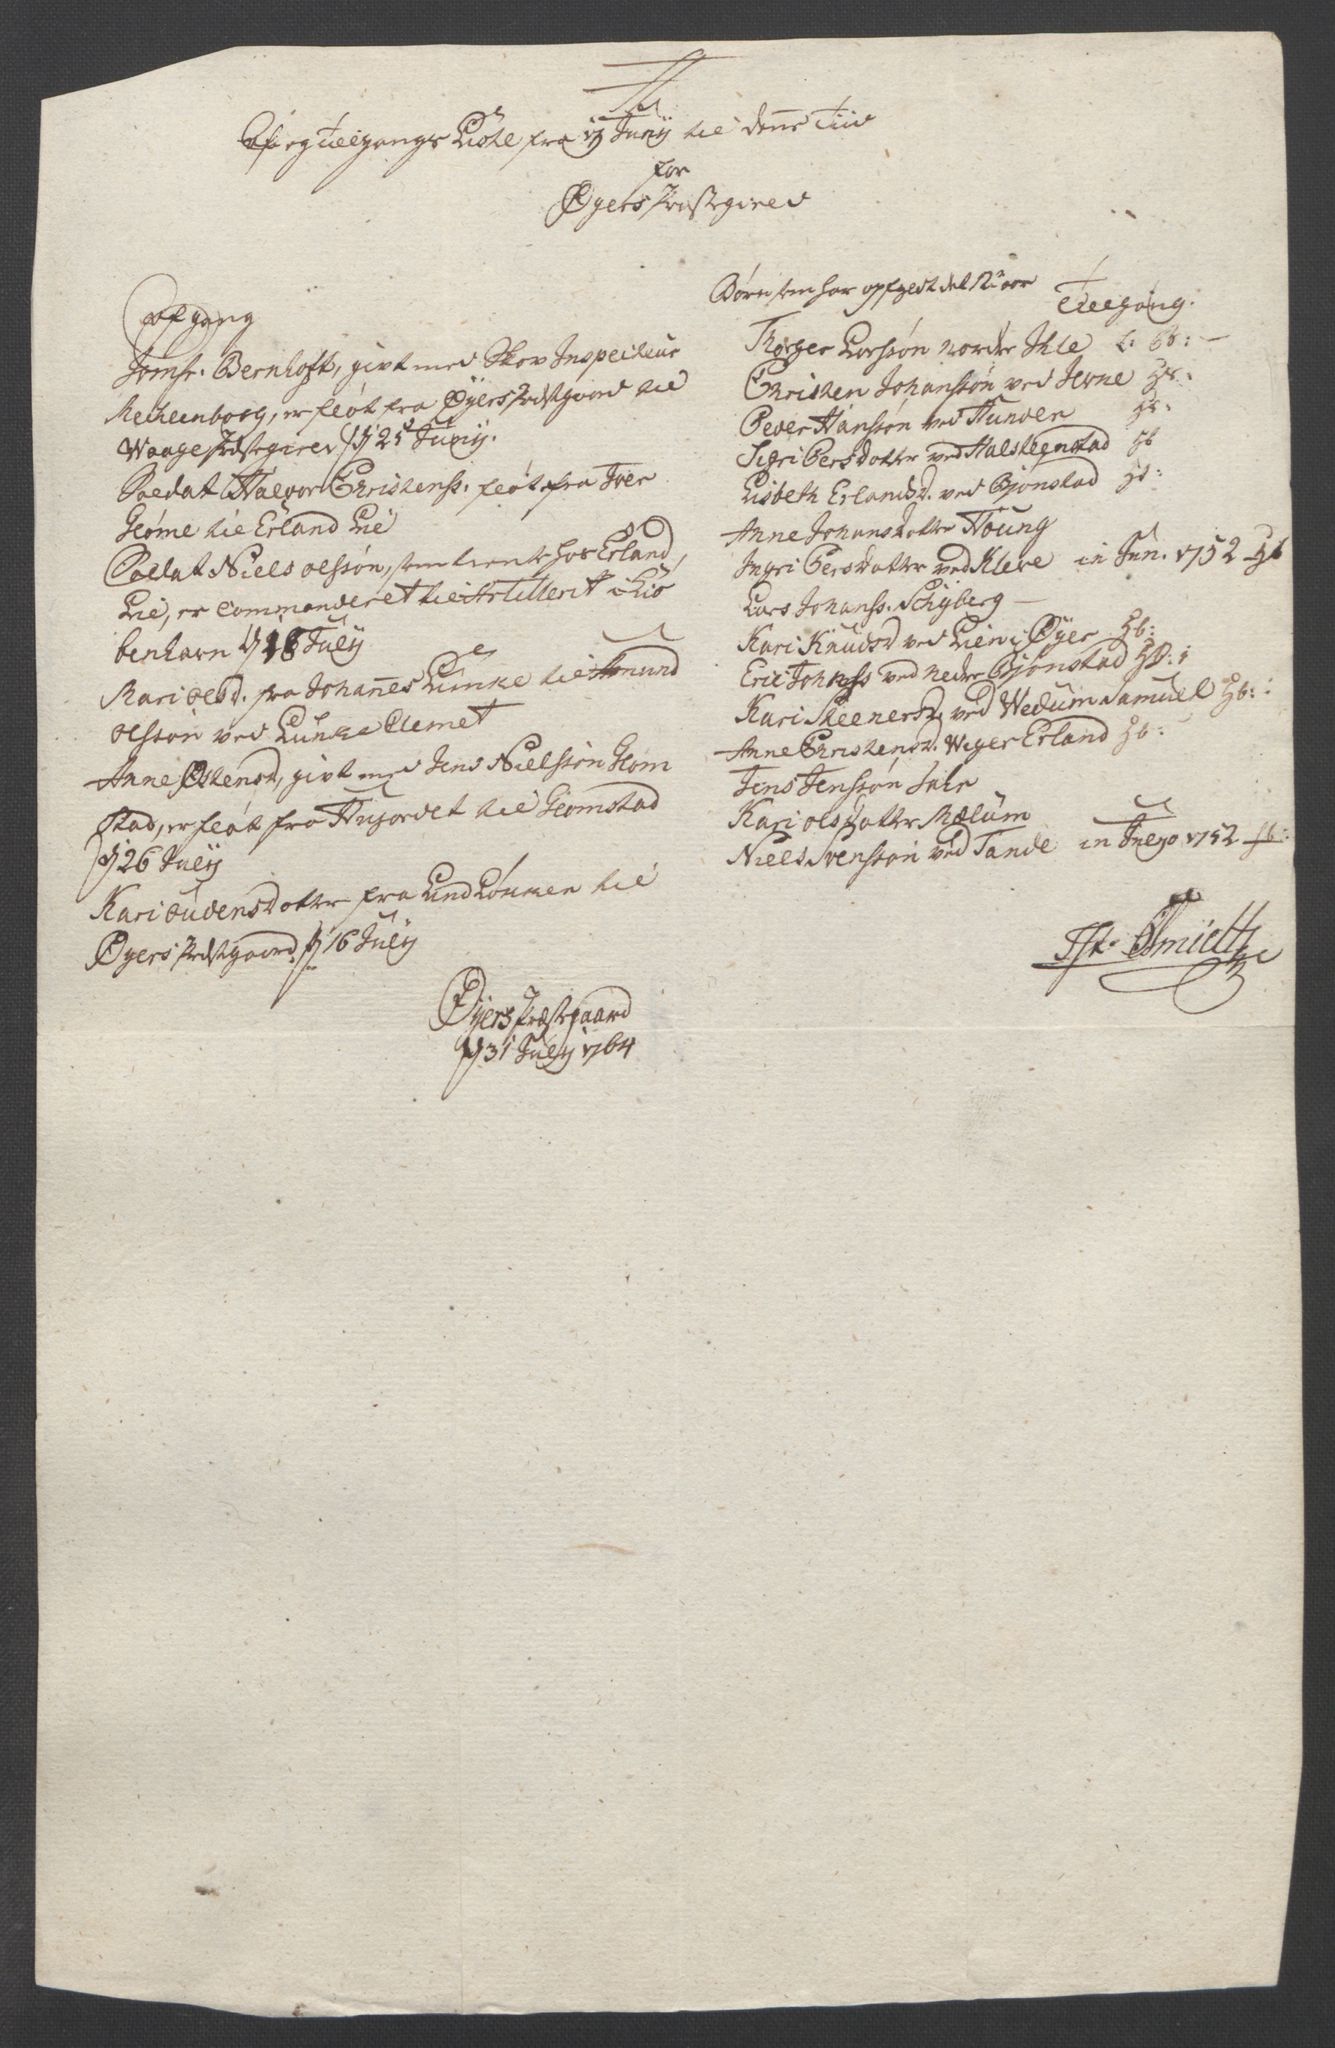 Af og Tilgangs Liste fra 17 Junij til denne Tiid
for
Øyers Præstegield
Afgang
Jomfr. Bernhoft, givt med Skov Inspecteur
Mechlenborg, er fløt fra Øyers Præstgaard til
Waage Præstegield d 25 Junij.
Soldat Halvor Christenss. fløt fra Iver
Glømе til Erland Lie
Soldat Niels Olssøn, som tiente hos Erland
Lie, er Commanderet til Artilleriet i Kiø
benhavn d 18 Julij
Mari Olsd. fra Johannes Lunke til Amund
Olssøn ved Lunke Clemet
Anne Østensd, givt med Jens Nielssøn Glom
stad, er fløt fra Hujordet til Glomstad
d 26 Julij
Kari Audensdotter fra Lund Løkken til
Øyers Præstgaard d 16 Julij
Øyers Præstegaard
d 31 Julij 1764
Tilgang.
Børn som har opfyldt det 12te aar
Thorger Larssøn nordre Ihle
Christen Johanssøn ved Jerne
Peder Hanssøn ved Hunder
Sigri Persdotter ved Halsteenstad
Lisbeth Erlandsd. ved Bjønstad
Anne Johansdotter Houng
Ingri Persdotter ved Kleve in Jun. 1752
Lars Johanss. Schyberg
Kari Knudsd ved Lien i Øyer
Eric Johanss ved Nedre Bjønstad
Kari Steenersd. ved Wedum Samuel
Anne Christensd. Weger Erland
Jens Jenssøn
Kari Olsdotter Mælum
Niels Svenssøn ved Tande in Julio 1752